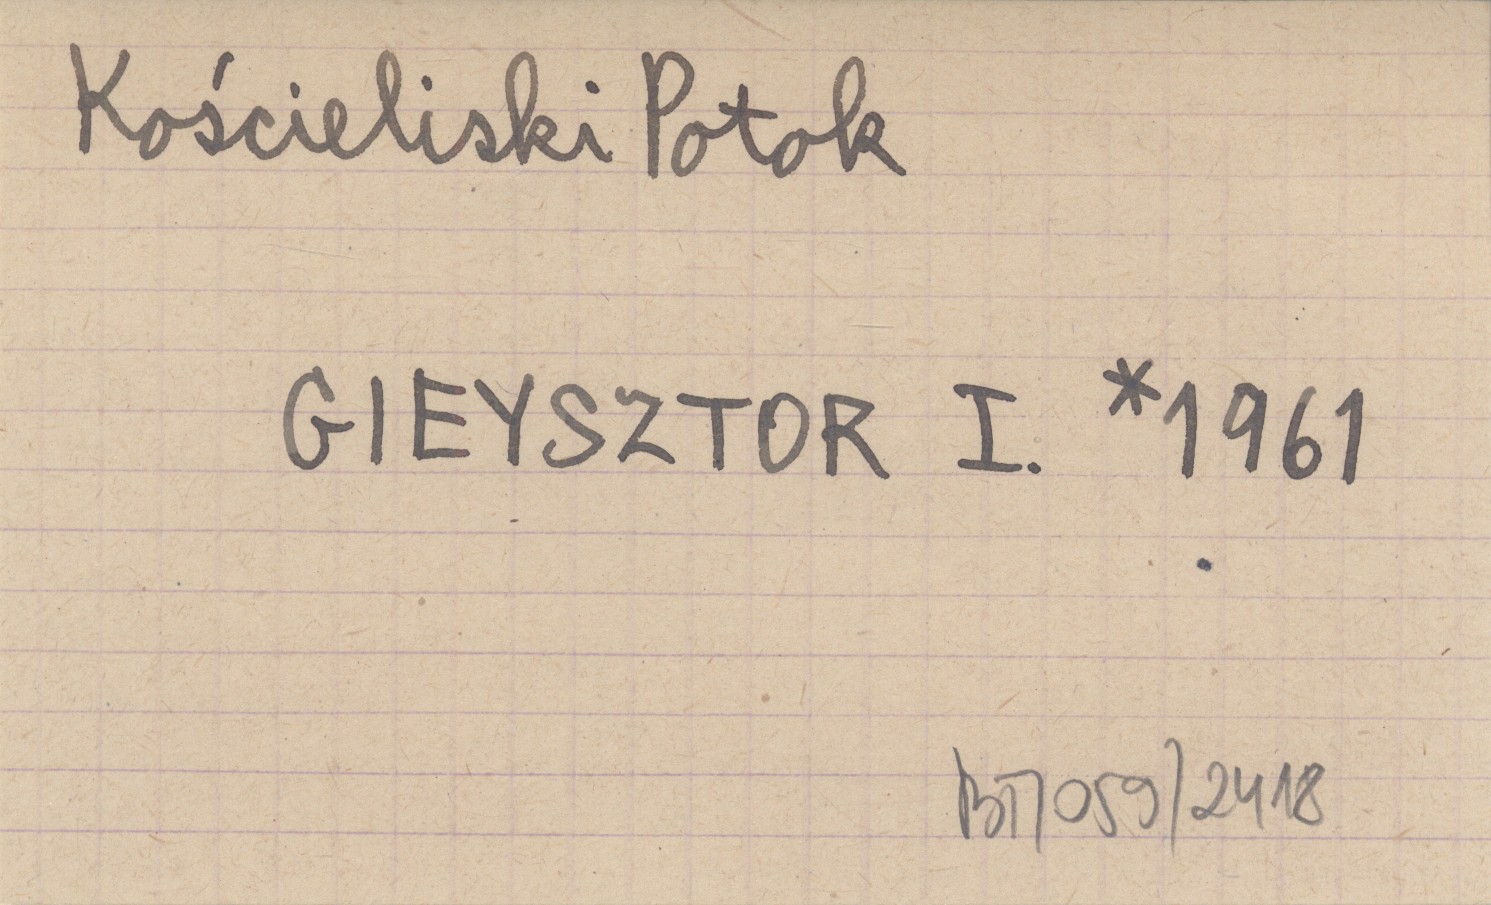 Kościeliski Potok
GIEYSZTOR I. *1961
BT/059/2418